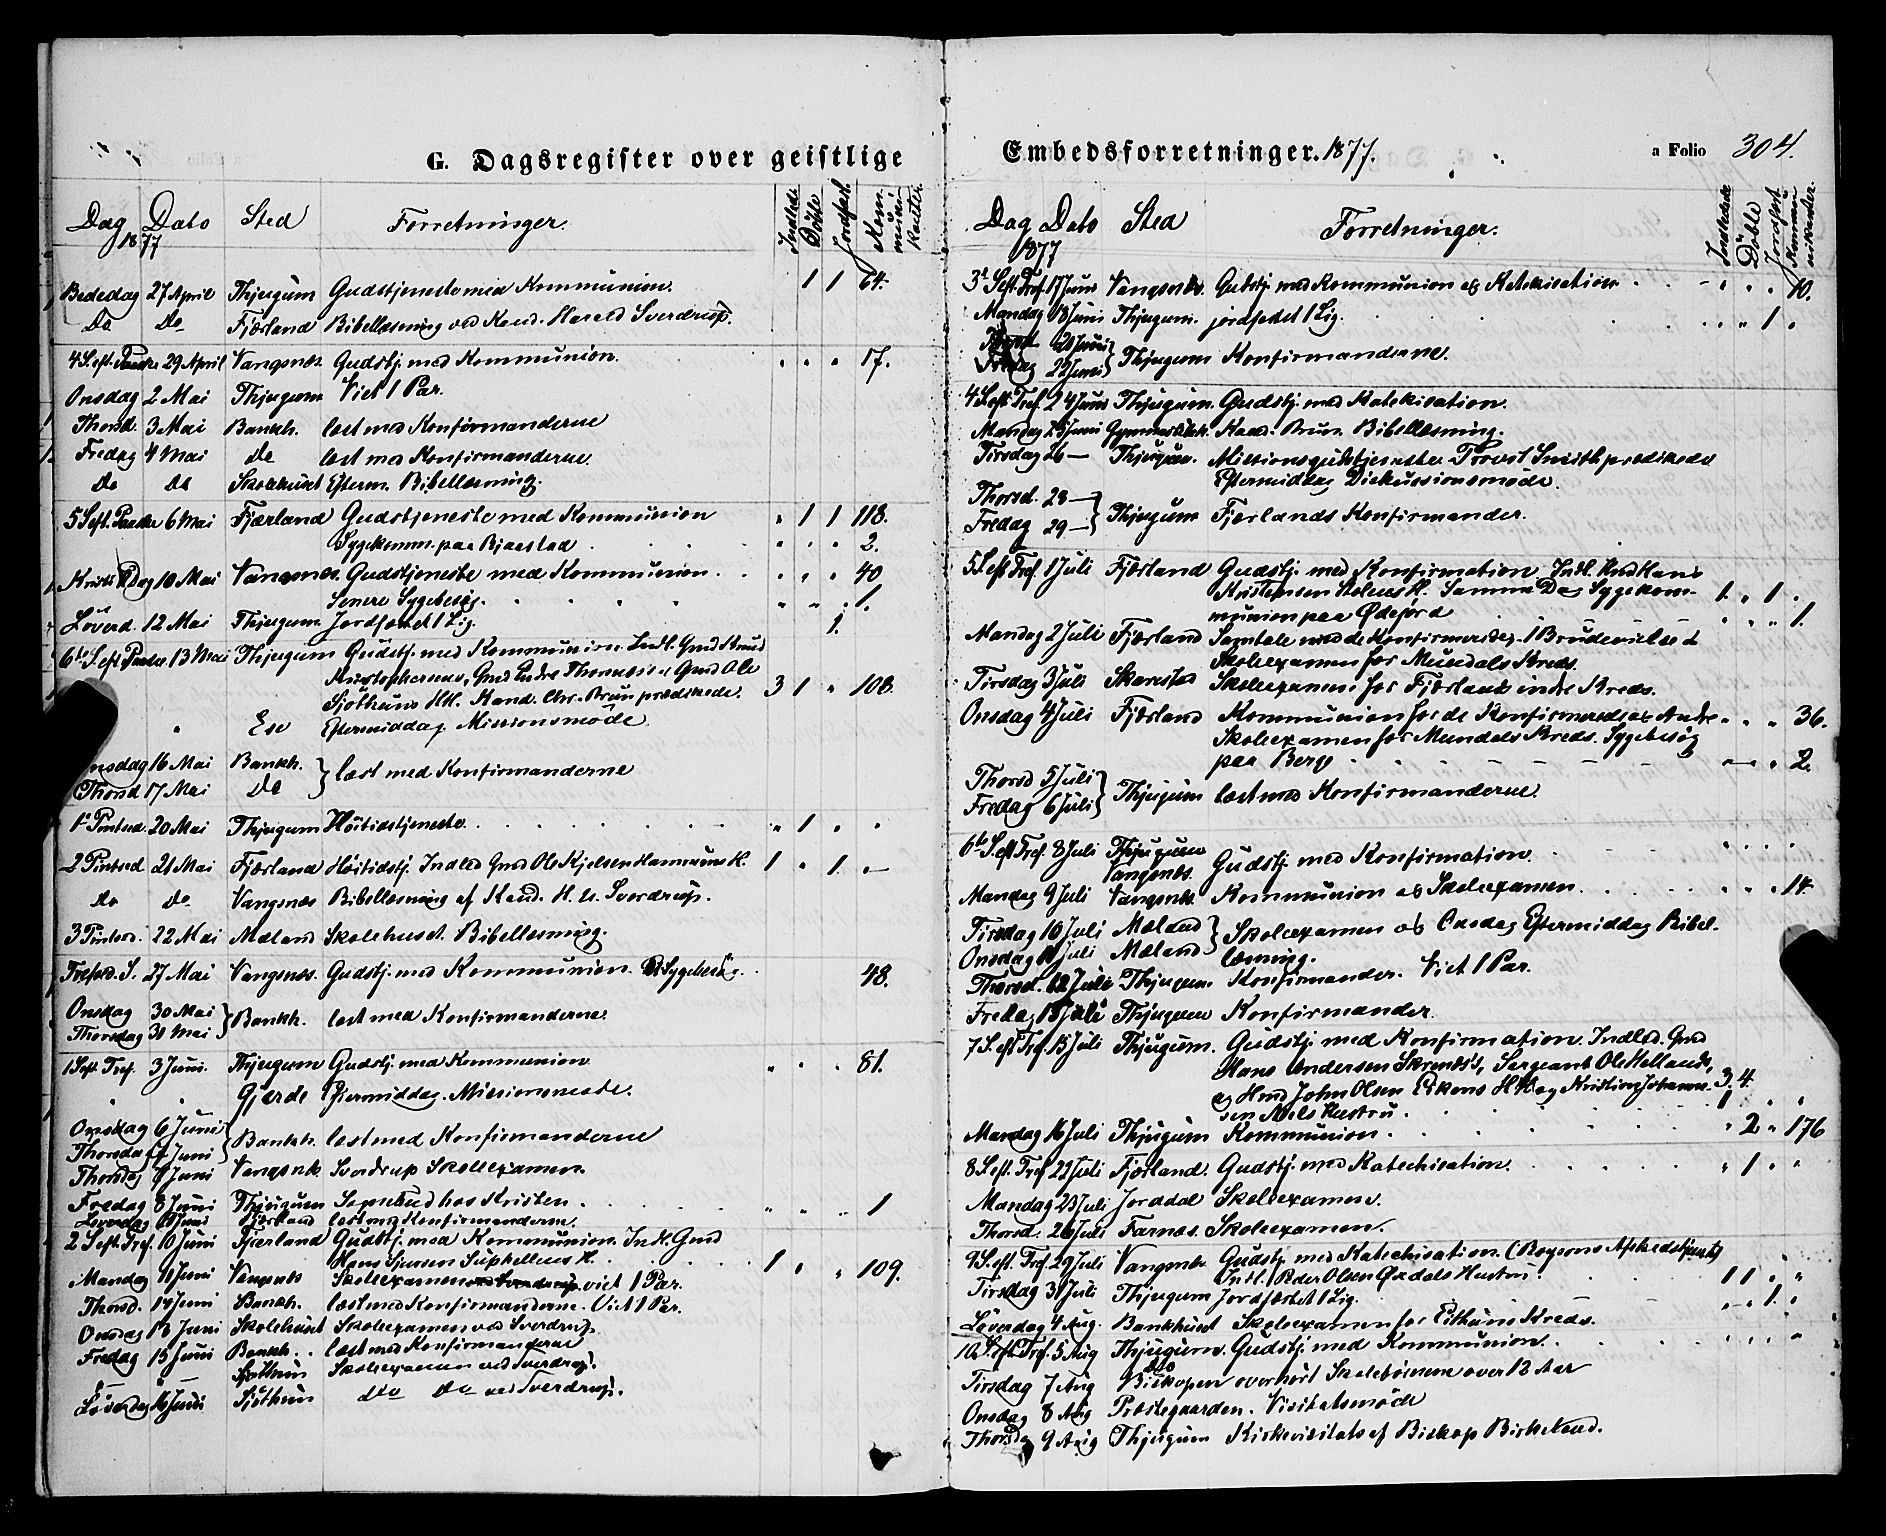 G. Dagsregister over geistlige
Dag Dato Sted Forretninger. Indledte Döbte Jordfæst. Kommunikanter.
1877
Bededag 27 April Thjugum Gudstjeneste med Kommunion. 1 1 64.
Do Do Fjærland Bibellæsning ved Kand. Harald Sverdrup.
4 S. eft. Paaske 29 April Vangsnes Gudstj. med Kommunion. 17.
Onsdag 2 Mai Thjugum Viet 1 Par.
Thorsd. 3 Mai Bankh. læst med Konfirmanderne
Fredag 4 Mai do læst med Konfirmanderne.
Do Do Skolehuset Efterm. Bibellæsning.
5 S. eft. Paaske 6 Mai Fjærland Gudstjeneste med Kommunion " 1 1 118.
Sygekomm. paa Bjaastad 2.
Kristi H. Dag 10 Mai Vangsnes. Gudstjeneste med Kommunion. 40
Senere Sygebesög. 1.
Löverd. 12 Mai Thjugum Jordfæstet 1 Lig. 1.
6te S. eft. Paaske. 13 Mai Thjugum Gudstj. med Kommunion. Indl. Gmd Knud
Kristophersens, Gmd Endre Thomases Gmd Ole
Sjöthuns H H. Kand. Chr. Brun prædikede. 3 1 " 108.
" Ese Eftermiddag. Missionsmöde.
Onsdag 16 Mai Bankh.
Thorsd 17 Mai Do } læst med Konfirmanderne
1ste Pintsed. 20 Mai Thjugum Höitidstjeneste. " 1 " "
2 Pintsed 21 Mai Fjærland Höitidstj. Indled Gmd Ole Kjelsen H. 1 " 1. "
do do Vangsnæs Bibellæsning af Kand. H. U. Sverdrup.
3 Pintsed. 22 Mai Mæland Skolehuset. Bibellæsning.
Trefold. S. 27 Mai Vangsnes. Gudstj. med Kommunion. Sygebesög. 48.
Onsdag 30 Mai
Thorsdag 31 Mai } Bankh. læst med Konfirmanderne.
1 S. eft. Tref. 3 Juni. Thjugum Gudstj. med Kommunion 81.
" " Gjerde Eftermiddag. Missionsmøde.
Onsdag 6 Juni
Thorsdag 7 Juni } Bankh. læst med Konfirmanderne
Thorsdag 7 Juni Vangsnk Sverdrup Skoleexamen.
Fredag 8 Juni Thjugum hos Kristen 1
Löverdag 9 Juni Fjærland læst med Konfirmanderne.
2 S. eft. Tref. 10 Juni Fjærland Gudstj. med Kommunion. Indl. Gmd
Hans Suphellens H. 1 " " 109.
Mandag 11 Juni Vangsnes Skoleexamen viet 1 Par.
Thorsd. 14 Juni Bankh. læst med Konfirmanderne. Viet 1 Par.
Onsdag 13 Juni Skolehuset Skoleexamen ved Sverdrup.
Fredag 15 Juni Bankh. læst med Konfirmanderne
Sjötthun Skoleexamen ved Sverdrup.
Löverdag 16 Juni Sjöthun do do ved Sverdrup.
Embedsforretninger. 1877.
a Folio 304.
Dag Dato Sted Forretninger. Indledte Döbte Jordfæst. Kommunikanter.
1877
3 S. eft. Tref. 17 Juni Vangsnes. Gudstj. med Kommunion og Katekisation 10.
Mandag 18 Juni Thjugum. jordfæstet 1 Lig. 1
Thorsd 21 Juni
Fredag 22 Juni } Thjugum Konfirmanderne.
4 S. eft. Tref. 24 Juni Thjugum. Gudstj. med Katekisation.
Mandag 25 Juni Kand. Brun. Bibellæsning.
Tirsdag 26 — Thjugum. Missionsgudstjeneste. Provst Smith prædikede
Eftermiddag Diskussionsmöde.
Thorsd. 28 —
Fredag 29 — } Thjugum Fjærlands Konfirmander.
5 S. eft. Tref. 1 Juli Fjærland Gudstj. med Konfirmation. Indl. Hmd Hans
Kristensen H. Samme Dag Sygekom- 1. " 1 "
munion paa Ødefjord 1.
Mandag 2 Juli Fjærland Samtale med de Konfirmerede, 1 Brudevielse &
Skoleexamen for Mundals Kreds.
Tirsdag 3 Juli Skarestad Skoleexamen for Fjærlands indre Kreds.
Onsdag 4 Juli Fjærland Kommunion for de Konfirmerede og Andre " " " 36.
Skoleexamen for Mundals Kreds. Sygebesög
paa Berge 2.
Thorsd 5 Juli
Fredag 6 Juli } Thjugum læst med Konfirmanderne.
6te S. eft. Tref. 8 Juli Thjugum
Vangsnes. Gudstj. med Konfirmation.
Mandag 9 Juli Vangsnes. Kommunion og Skoleexamen. 14.
Tirsdag 10 Juli Mæland
Onsdag 11 Juli Mæland } Skoleexamen og Onsdag Eftermiddag Bibel-
læsning.
Thorsd. 12 Juli Thjugum Konfirmander. Viet 1 Par.
Fredag 13 Juli Thjugum Konfirmander.
7 S. eft. Tref. 15 Juli Thjugum. Gudstj. med Konfirmation. Indled. Gmd
Hans Andersen Sergeant Ole Hellands,
og Hmd John Olsen Eskens H H og Kristine Johanne- 3. 4.
sen Niels Hustru 1
Mandag 16 Juli Thjugum Kommunion. " 2 " 176
8 S. eft. Tref. 22 Juli Fjærland. Gudstj. med Katechisation. " 1 " "
Mandag 23 Juli Jorddal Skoleexamen.
Thorsd. 26 Juli Farnæs. Skoleexamen.
9 S. eft. Tref. 29 Juli Vangsnes. Gudstj. med Katechisation. (Afskedstjenst)
Indl. Peder Olsen Øxdals Hustru. 1 1 " "
Tirsdag 31 Juli Thjugum Jordfæstet 1 Lig. " " 1. "
Löverdag 4 Aug. Bankhuset Skoleexamen for Eithuns Kreds.
10 S. eft. Tref. 5 Aug Thjugum. Gudstj. med Kommunion.
Tirsdag 7 Aug do Biskopen overhört Skolebörnene over 13 Aar
Onsdag 8 Aug Præstegaarden. Visitatsmöde
Thorsdag 9 Aug Thjugum Kirkevisitats af Biskop Birkeland.